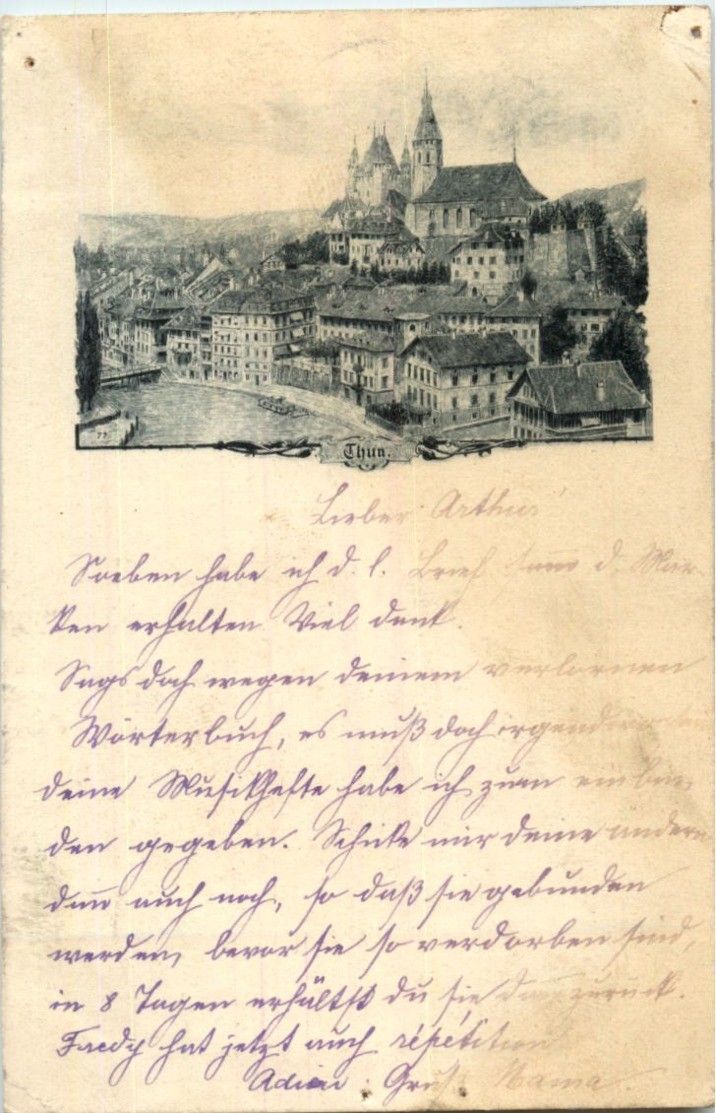 77.
Thun.
Lieber Arthur!
Soeben habe ich d. l. Brief samt d. Mar-
ken erhalten Viel dank.
Sags doch wegen deinem verlornen
Wörterbuch, es muß doch irgendwo
deine Musikhefte habe ich zum einbin-
den gegeben. Schicke mir deine andern
dann auch noch, so daß sie gebunden
werden, bevor sie so verdorben sind,
in 8 Tagen erhältst du sie zurück.
Fredy hat jetzt auch répétition
Adieu. Gruß Mama.